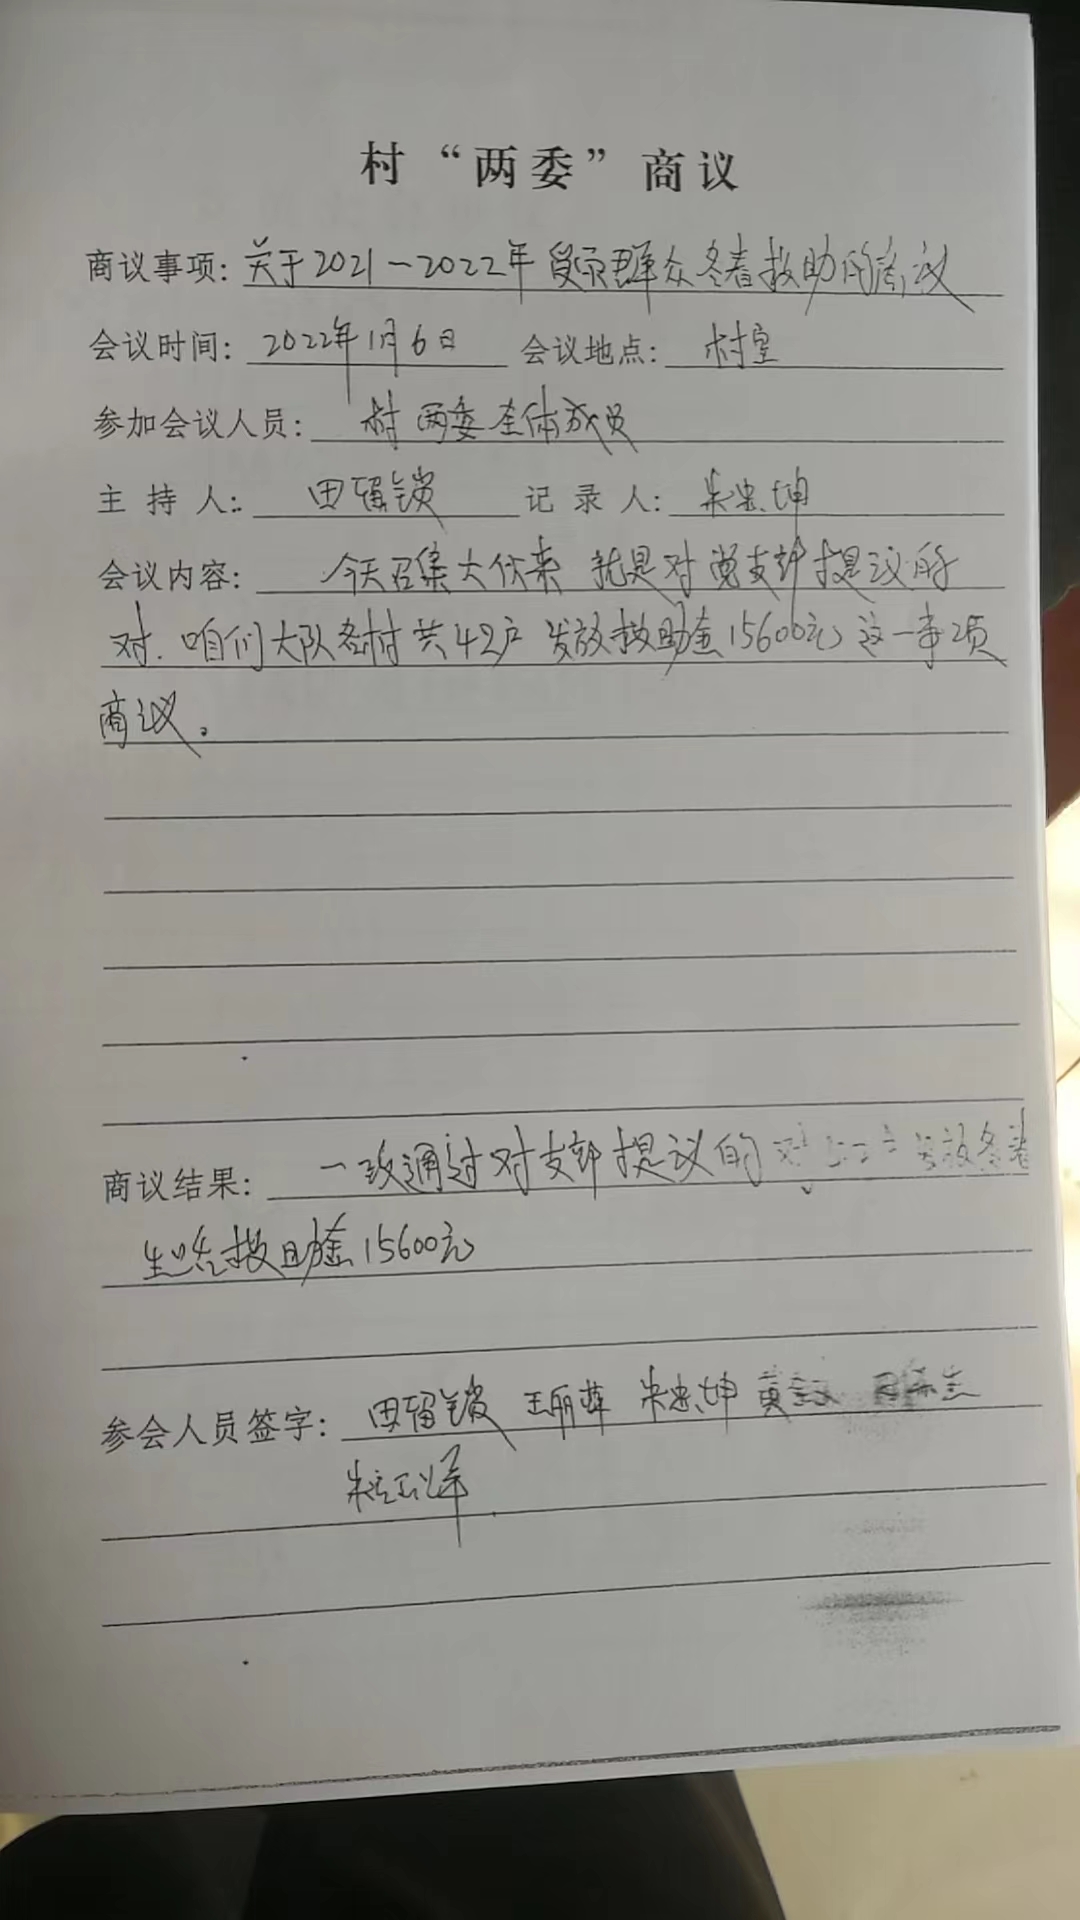 村“两委”商议
商议事项：关于2021—2022年受灾群众冬春救助的商议
会议时间：2022年1月6日 会议地点：村室
参加会议人员：村两委全体成员
主持人：田留锁 记录人：朱忠坤
会议内容：今天召集大伙来 就是对党支部提议的
对咱们大队各村共42户发放救助金15600元这一事项
商议。
商议结果：一致通过对支部提议的 发放冬春
生活救助金15600元
参会人员签字：田留锁 王丽萍 朱忠坤 黄
朱